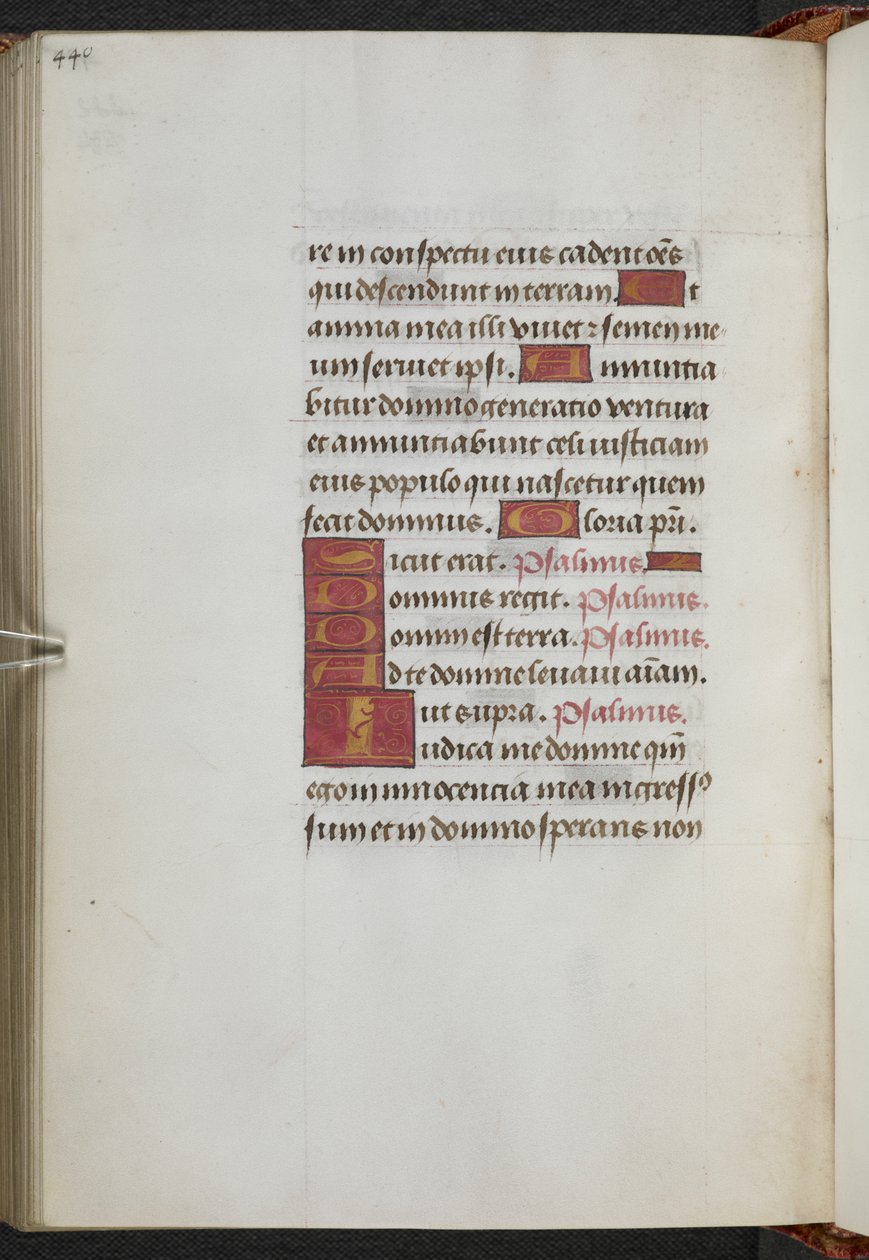 440
re in conspectu eius cadent oe̅s
qui descendunt in terram. Et
anima mea illi viuet ⁊ semen me
um seruiet ipsi. Annuntia
bitur domino generatio ventura
et annuntiabunt celi iusticiam
eius populo qui nascetur quem
fecit dominus. Gloria pr̅i.
Sicut erat. Psalmus.
Dominus regit. Psalmus.
Domini est terra. Psalmus.
Ad te domine leuaui ai̅am.
ut supra. Psalmus.
Iudica me domine qm̅
ego in innocencia mea ingressꝰ
sum et in domino sperans non